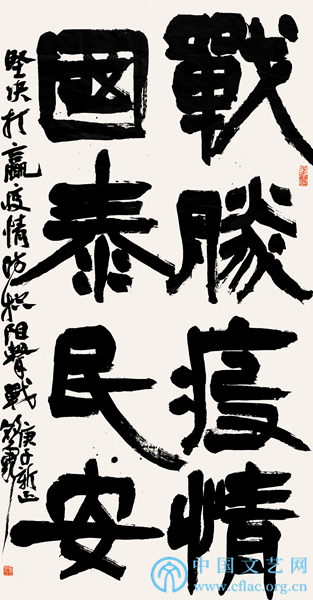 戰勝疫情
國泰民安
坚决打贏疫情防控阻擊戰
庚子新正
中国文艺网
www.cflac.org.cn